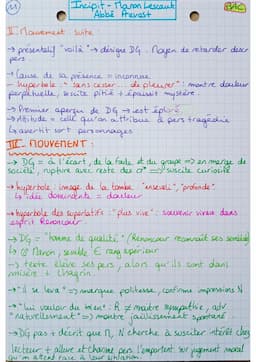 Incipit - Manon Lescaut
Abbé Prévost
BAC
II. Mouvement suite
→ présentatif "voilà" → désigne DG. Moyen de retarder descr
pers
→ Cause de sa présence = inconnue.
- hyperbole "sans cesser de pleurer": montre douleur
perpétuelle, suscite pitié + épaissit mystère.
→ Premier aperçu de DG → est éploré
→ Attitude = celle qu'on attribue à pers tragédie
↳ avertit sort personnages
III - MOUVEMENT :
→ DG = à l'écart, de la foule et du groupe => en marge de
société, rupture avec reste des => suscite curiosité
→ hyperbole : image de la tombe "enseveli", "profonde"
↳ idée dominante = douleur
→ hyperbole des superlatifs : "plus vive" : souvenir vivace dans
esprit Renoncour
→ DG = "homme de qualité" (Renoncour reconnaît ses semblables)
Manon, semble € rang supérieur
→ texte élève ses pers, alors qu'ils sont dans
misère + chagrin.
→ "il se leva" => marque politesse, confirme impressions N
→ "lui vouloir du bien" : R ≠ narre sympathie, adv
"naturellement" => montre jaillissement spontané.
→ DG pas + décrit que M, N cherche à susciter intérêt chez
lecteur + allure et charme pers l'emportent sur jugement moral
qu'on attend face à leur libération.